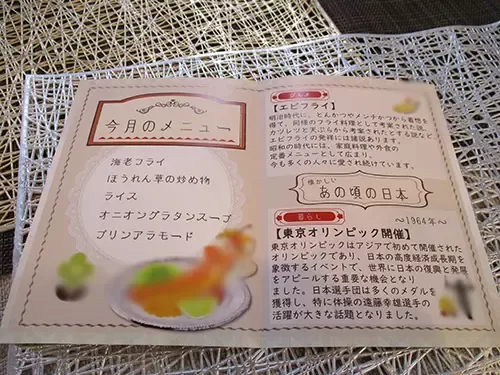 今月のメニュー
海老フライ
ほうれん草の炒め物
ライス
オニオングラタンスープ
プリンアラモード
グルメ
【エビフライ】
明治時代に、とんかつやメンチかつから着想を
得て、同様のフライ料理として考案された説、
カツレツと天ぷらから考案されたとする説など
エビフライの発祥には諸説あります。
昭和の時代には、家庭料理や外食の
定番メニューとして広まり、
今も多くの人々に愛され続けています。
懐かしい
あの頃の日本
暮らし
～1964年～
【東京オリンピック開催】
東京オリンピックはアジアで初めて開催された
オリンピックであり、日本の高度経済成長期を
象徴するイベントで、世界に日本の復興と発展
をアピールする重要な機会となり
ました。日本選手団は多くのメダルを
獲得し、特に体操の遠藤幸雄選手の
活躍が大きな話題となりました。